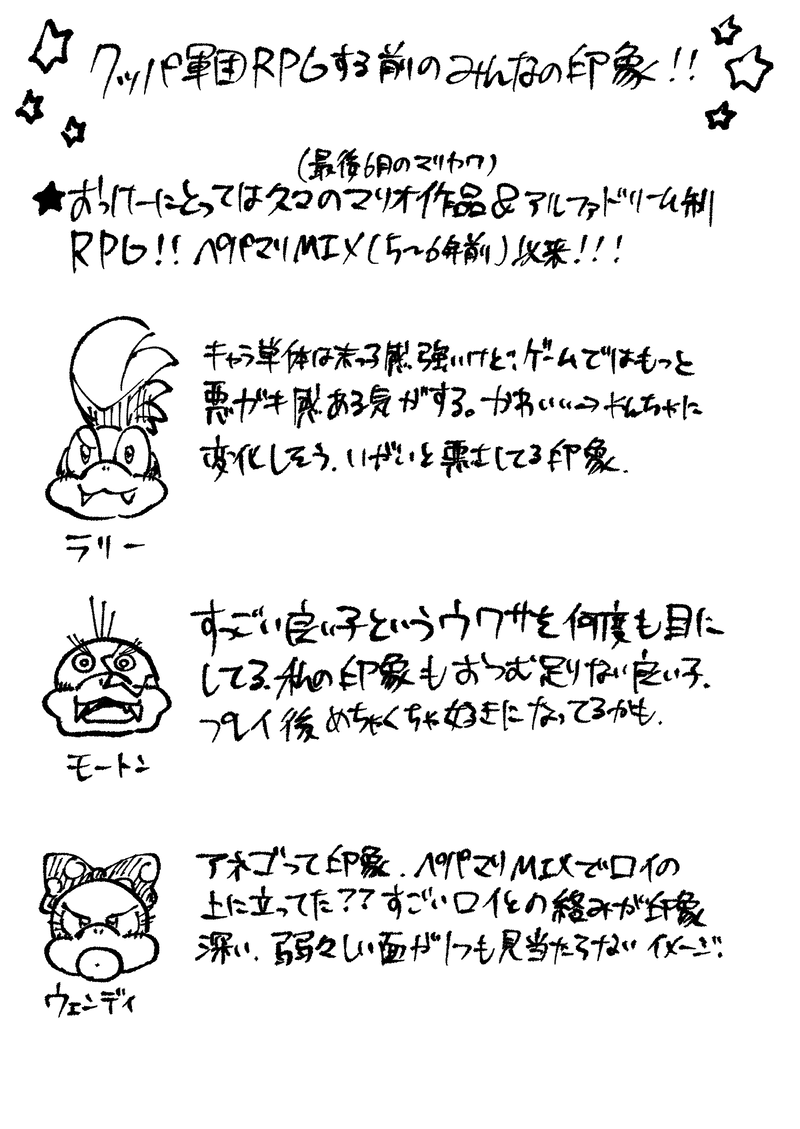 クッパ軍団RPGする前のみんなの印象!!
(最後6月のマリカウ)
★おっけーにとっては久々のマリオ作品&アルファドリーム制
RPG!! ペパマリMIX(5〜6年前)以来!!!
キャラ単体は末っ子感強いけど、ゲームではもっと
悪ガキ感ある気がする。かわいい→やんちゃに
変化しそう。いがいと悪さしてる印象。
ラリー
すっごい良い子というウワサを何度も目に
してる。私の印象もおつむ足りない良い子。
プレイ後めちゃくちゃ好きになってるかも。
モートン
アネゴって印象。ペパマリMIXでロイの
上に立ってた??すごいロイとの絡みが印象
深い。弱々しい面が1つも見当たらないイメージ。
ウェンディ